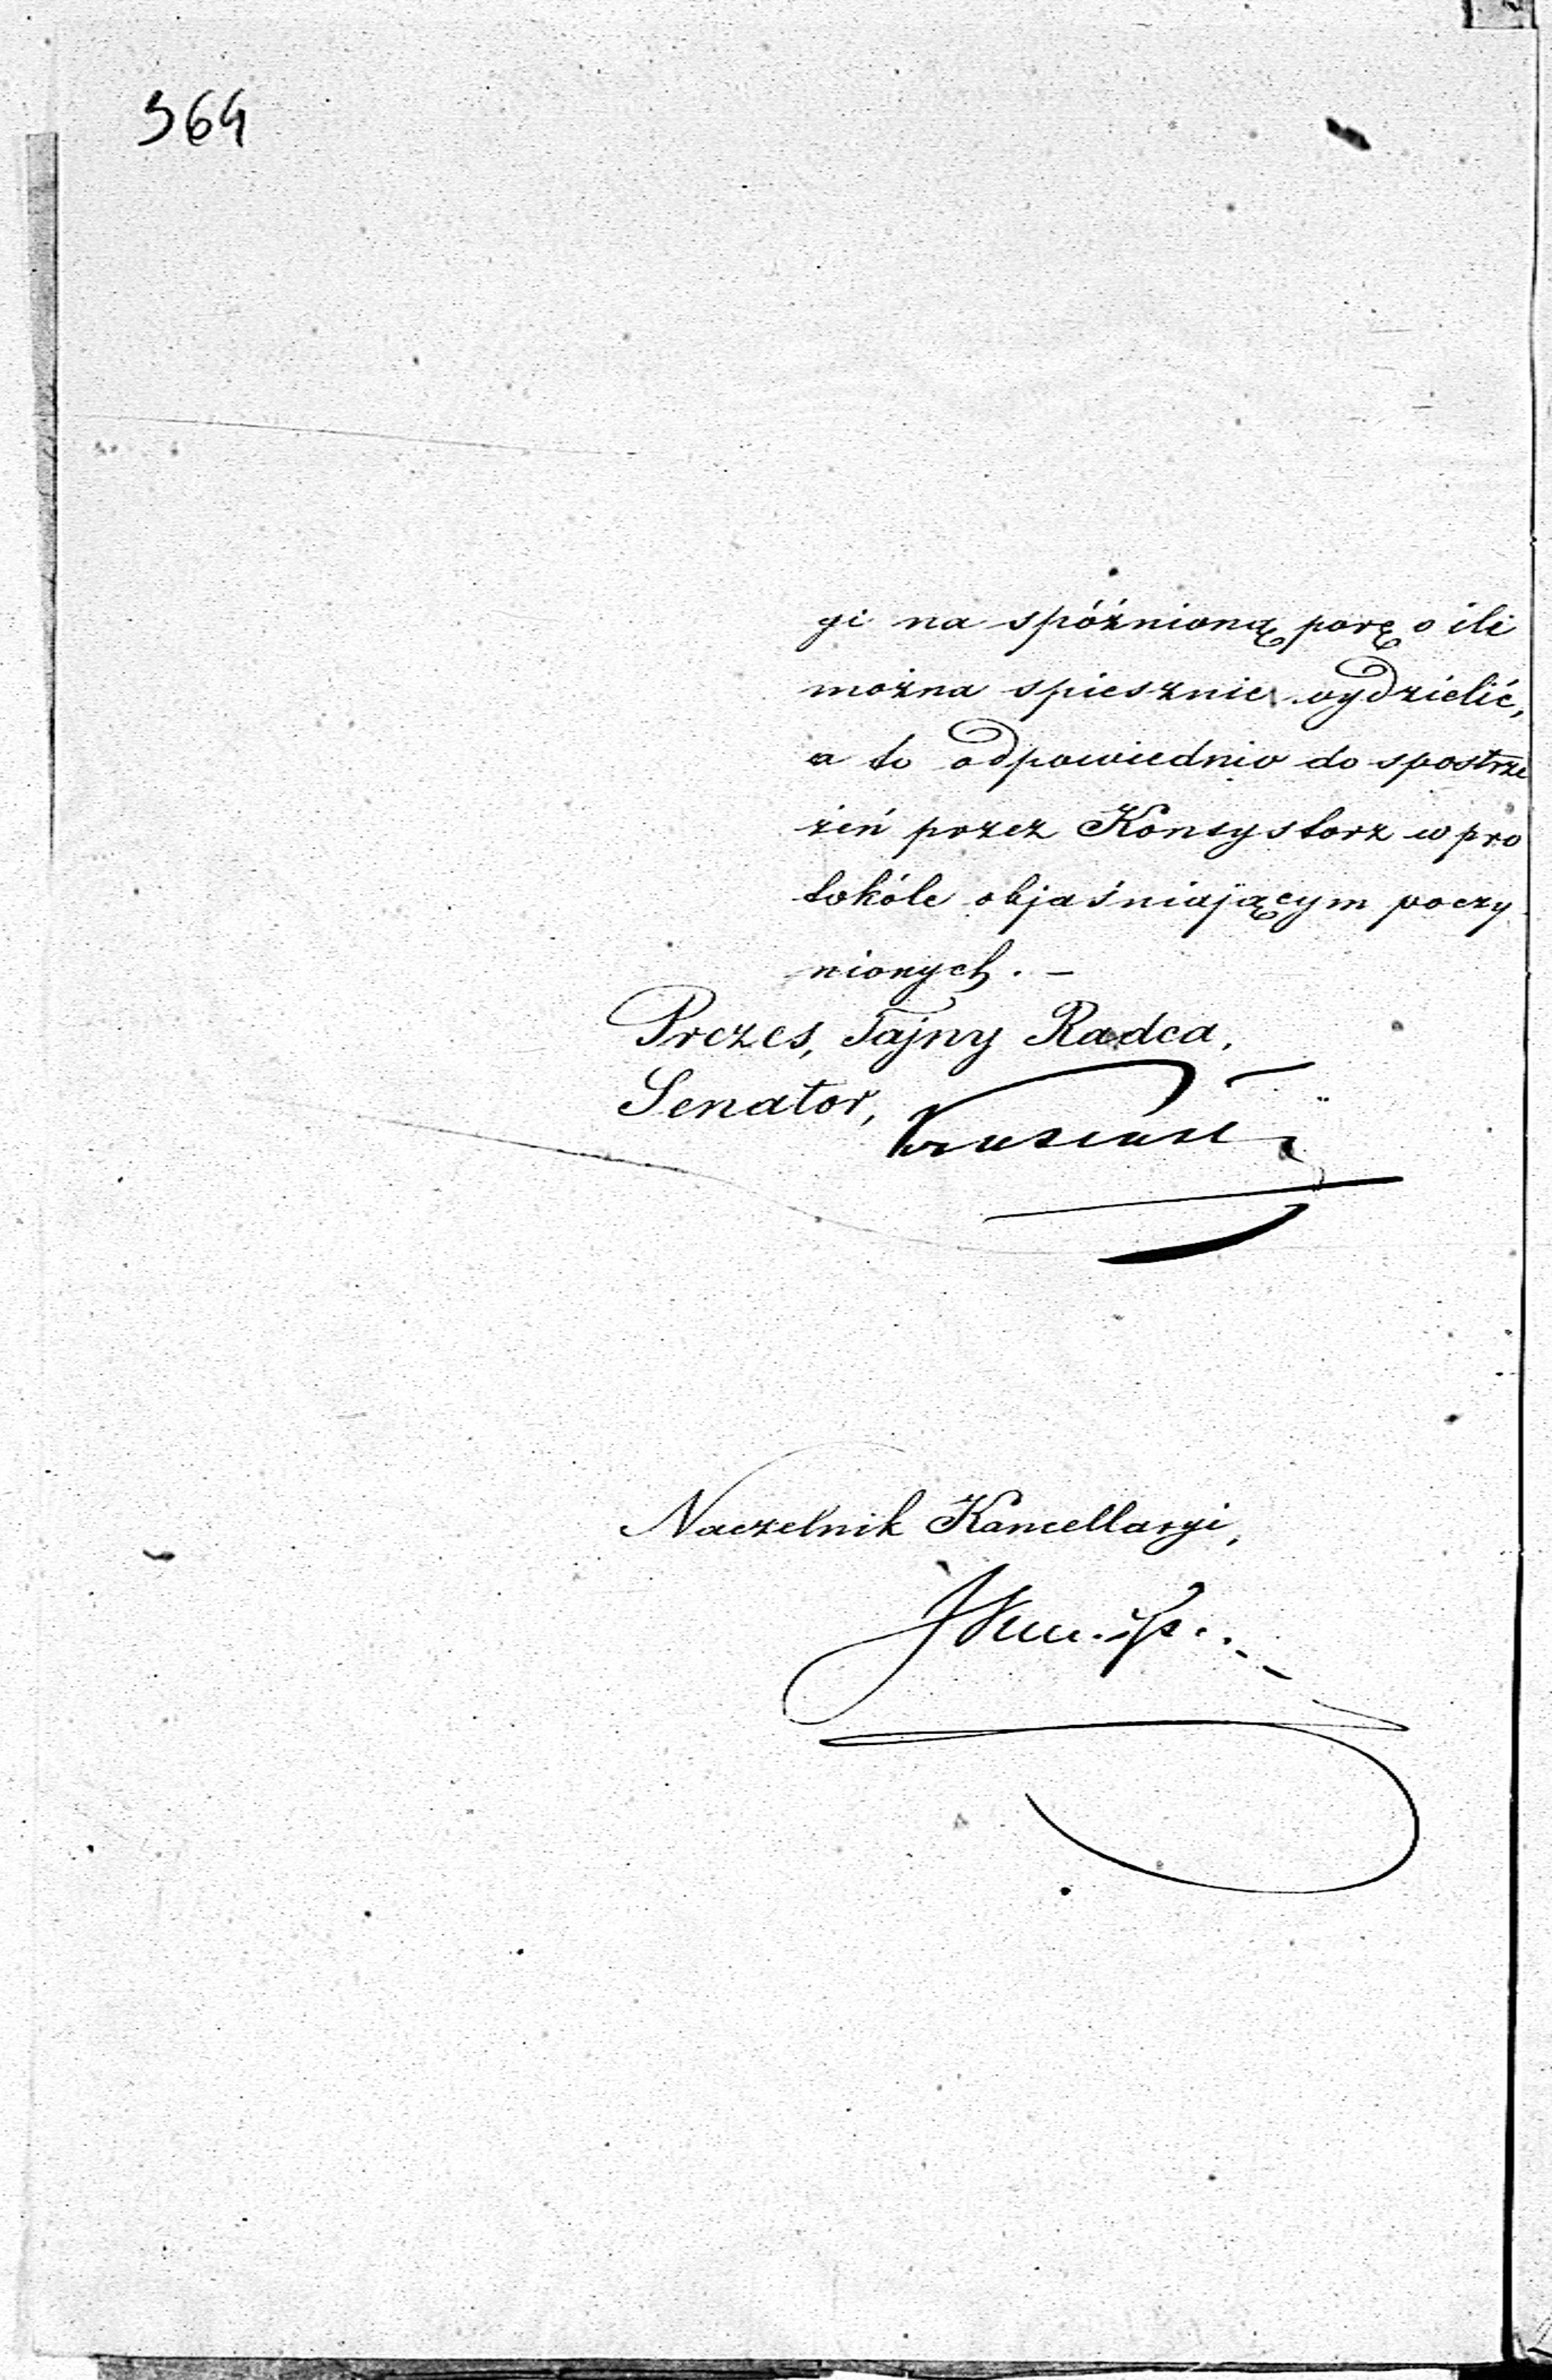 364
gi na spóźnioną porę o ile
można spiesznie wydzielić,
a to odpowiednio do spostrze
żeń przez Konsystorz w pro
tokóle objaśniającym poczy
nionych. —
Prezes, Tajny Radca,
Senator,
Naczelnik Kancellaryi,